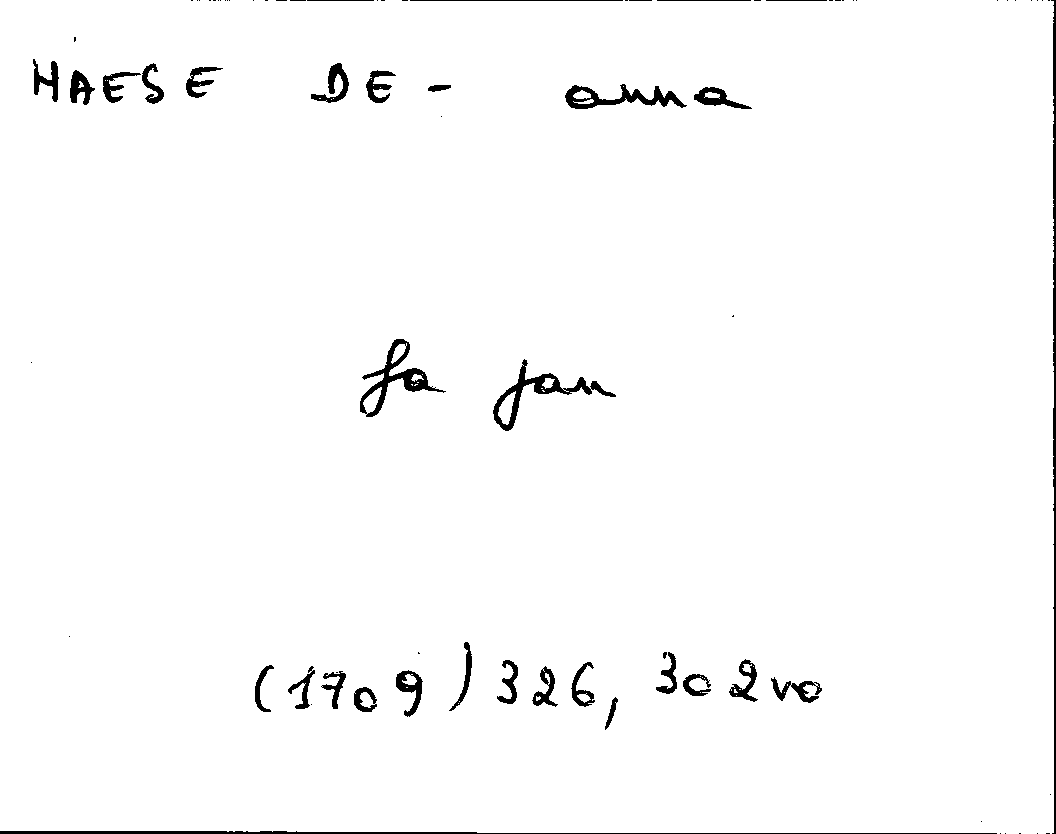 HAESE DE - anna
fa jan
(1709) 326, 302vo